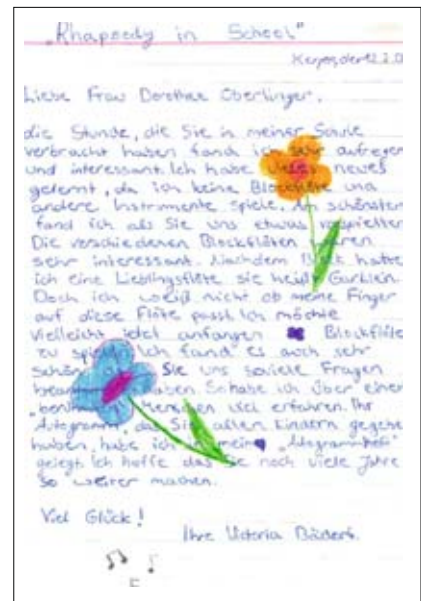 „Rhapsody in School"
Liebe Frau Dorothee Oberlinger,
die Stunde, die Sie in meiner Schule
verbracht haben fand ich sehr
und interessant. Ich habe vieles neues
gelernt, da ich keine Blockflöte und
andere Instrumente spiele. Am schönsten
fand ich als Sie uns etwas vorspielten
Die verschiedenen Blockflöten waren
sehr interessant. Nachdem hatte
ich eine Lieblingsflöte sie heißt Garklein.
Doch ich weiß nicht ob meine Finger
auf diese Flöte passt. Ich möchte
vielleicht anfangen Blockflöte
zu spielen Ich fand es auch sehr
schön Sie uns soviele Fragen
haben So habe ich über einen
Menschen viel erfahren. Ihr
Autogramm, das Sie allen Kindern
haben, habe ich „Autogrammheft"
gelegt. Ich hoffe das Sie noch viele Jahre
so weiter machen.
Viel Glück!
Ihre Victoria